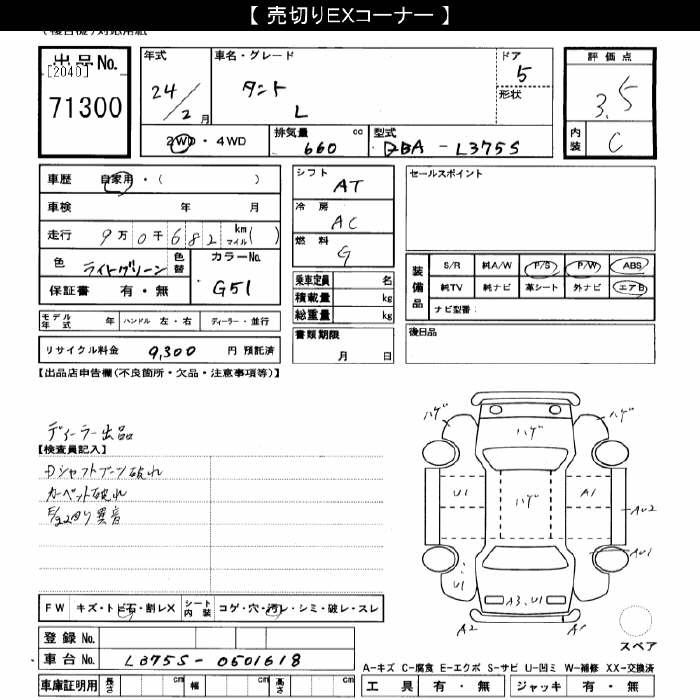 【 売切りEXコーナー 】
(複合機)対応用紙
出品No.
[2040]
71300
年式
24/2月
車名・グレード
タント
L
ドア
5
形状
評価点
3.5
内装
C
2WD・4WD
排気量 cc
660
型式
DBA - L375S
車歴 自家用・( )
車検 年 月
走行 9万0千682 km マイル( )
色 ライトグリーン 色替
カラーNo.
G51
保証書 有・無
モデル年式 年 ハンドル 左・右 ディーラー・並行
リサイクル料金 9,300 円 預託済
シフト
AT
冷房
AC
燃料
G
乗車定員 名
積載量 kg
総重量 kg
書類期限
月 日
セールスポイント
装備品
S/R 純A/W P/S P/W ABS
純TV 純ナビ 革シート 外ナビ エアB
ナビ型番:
後日品
【出品店申告欄(不良箇所・欠品・注意事項等)】
ディーラー出品
【検査員記入】
Dシャフトブーツ破れ
カーペット破れ
E/g回り異音
ハゲ
ハゲ
ハゲ
ハゲ
U1
A1
AU2
AU1
U1
A3,U1
A2
A1
スペア
FW キズ・トビ石・割レX シート内装 コゲ・穴・汚レ・シミ・破レ・スレ
登録No.
車台No. L375S-0501618
車庫証明用 長さ cm 幅 cm 高さ cm
A-キズ C-腐食 E-エクボ S-サビ U-凹ミ W-補修 XX-交換済
工具 有・無 ジャッキ 有・無